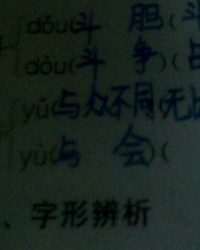 dǒu(斗 胆)(斗
dòu(斗 争)(
yǔ(与众不同(无
yù(与 会)(
、字形辨析